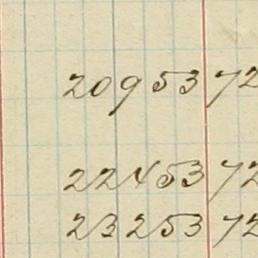 20953 72
22453 72
23253 72